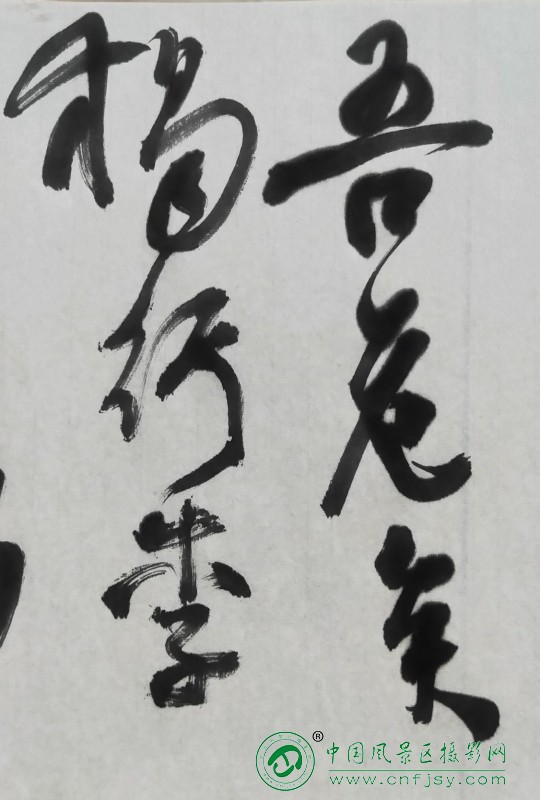 吾危矣
行李
中国风景区摄影网
www.cnfjsy.com